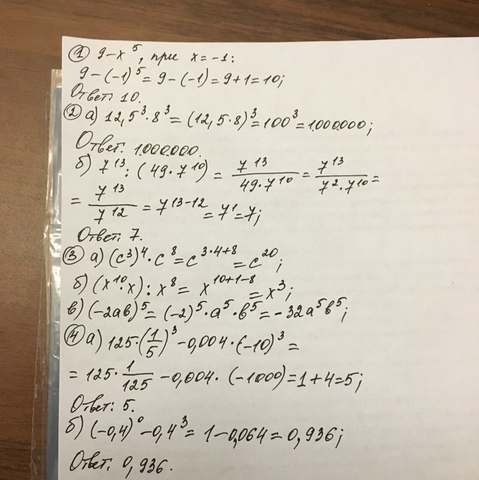 ① 9-x⁵, при x=-1:
9-(-1)⁵=9-(-1)=9+1=10;
Ответ: 10.
② а) 12,5³·8³=(12,5·8)³=100³=1.000.000;
Ответ: 1.000.000.
б) 7¹³:(49·7¹⁰)=7¹³/(49·7¹⁰)=7¹³/(7²·7¹⁰)=
=7¹³/7¹²=7¹³⁻¹²=7¹=7;
Ответ: 7.
③ а) (c³)⁴·c⁸=c³·⁴⁺⁸=c²⁰;
б) (x¹⁰·x):x⁸=x¹⁰⁺¹⁻⁸=x³;
в) (-2ab)⁵=(-2)⁵·a⁵·b⁵=-32a⁵b⁵;
④ а) 125·(1/5)³-0,004·(-10)³=
=125·1/125-0,004·(-1000)=1+4=5;
Ответ: 5.
б) (-0,4)⁰-0,4³=1-0,064=0,936;
Ответ: 0,936.